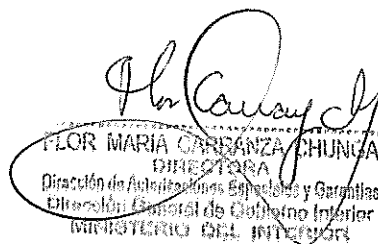 FLOR MARIA CARRANZA CHUNGA
DIRECTORA
Dirección de Autorizaciones Especiales y Garantías
Dirección General de Gobierno Interior
MINISTERIO DEL INTERIOR